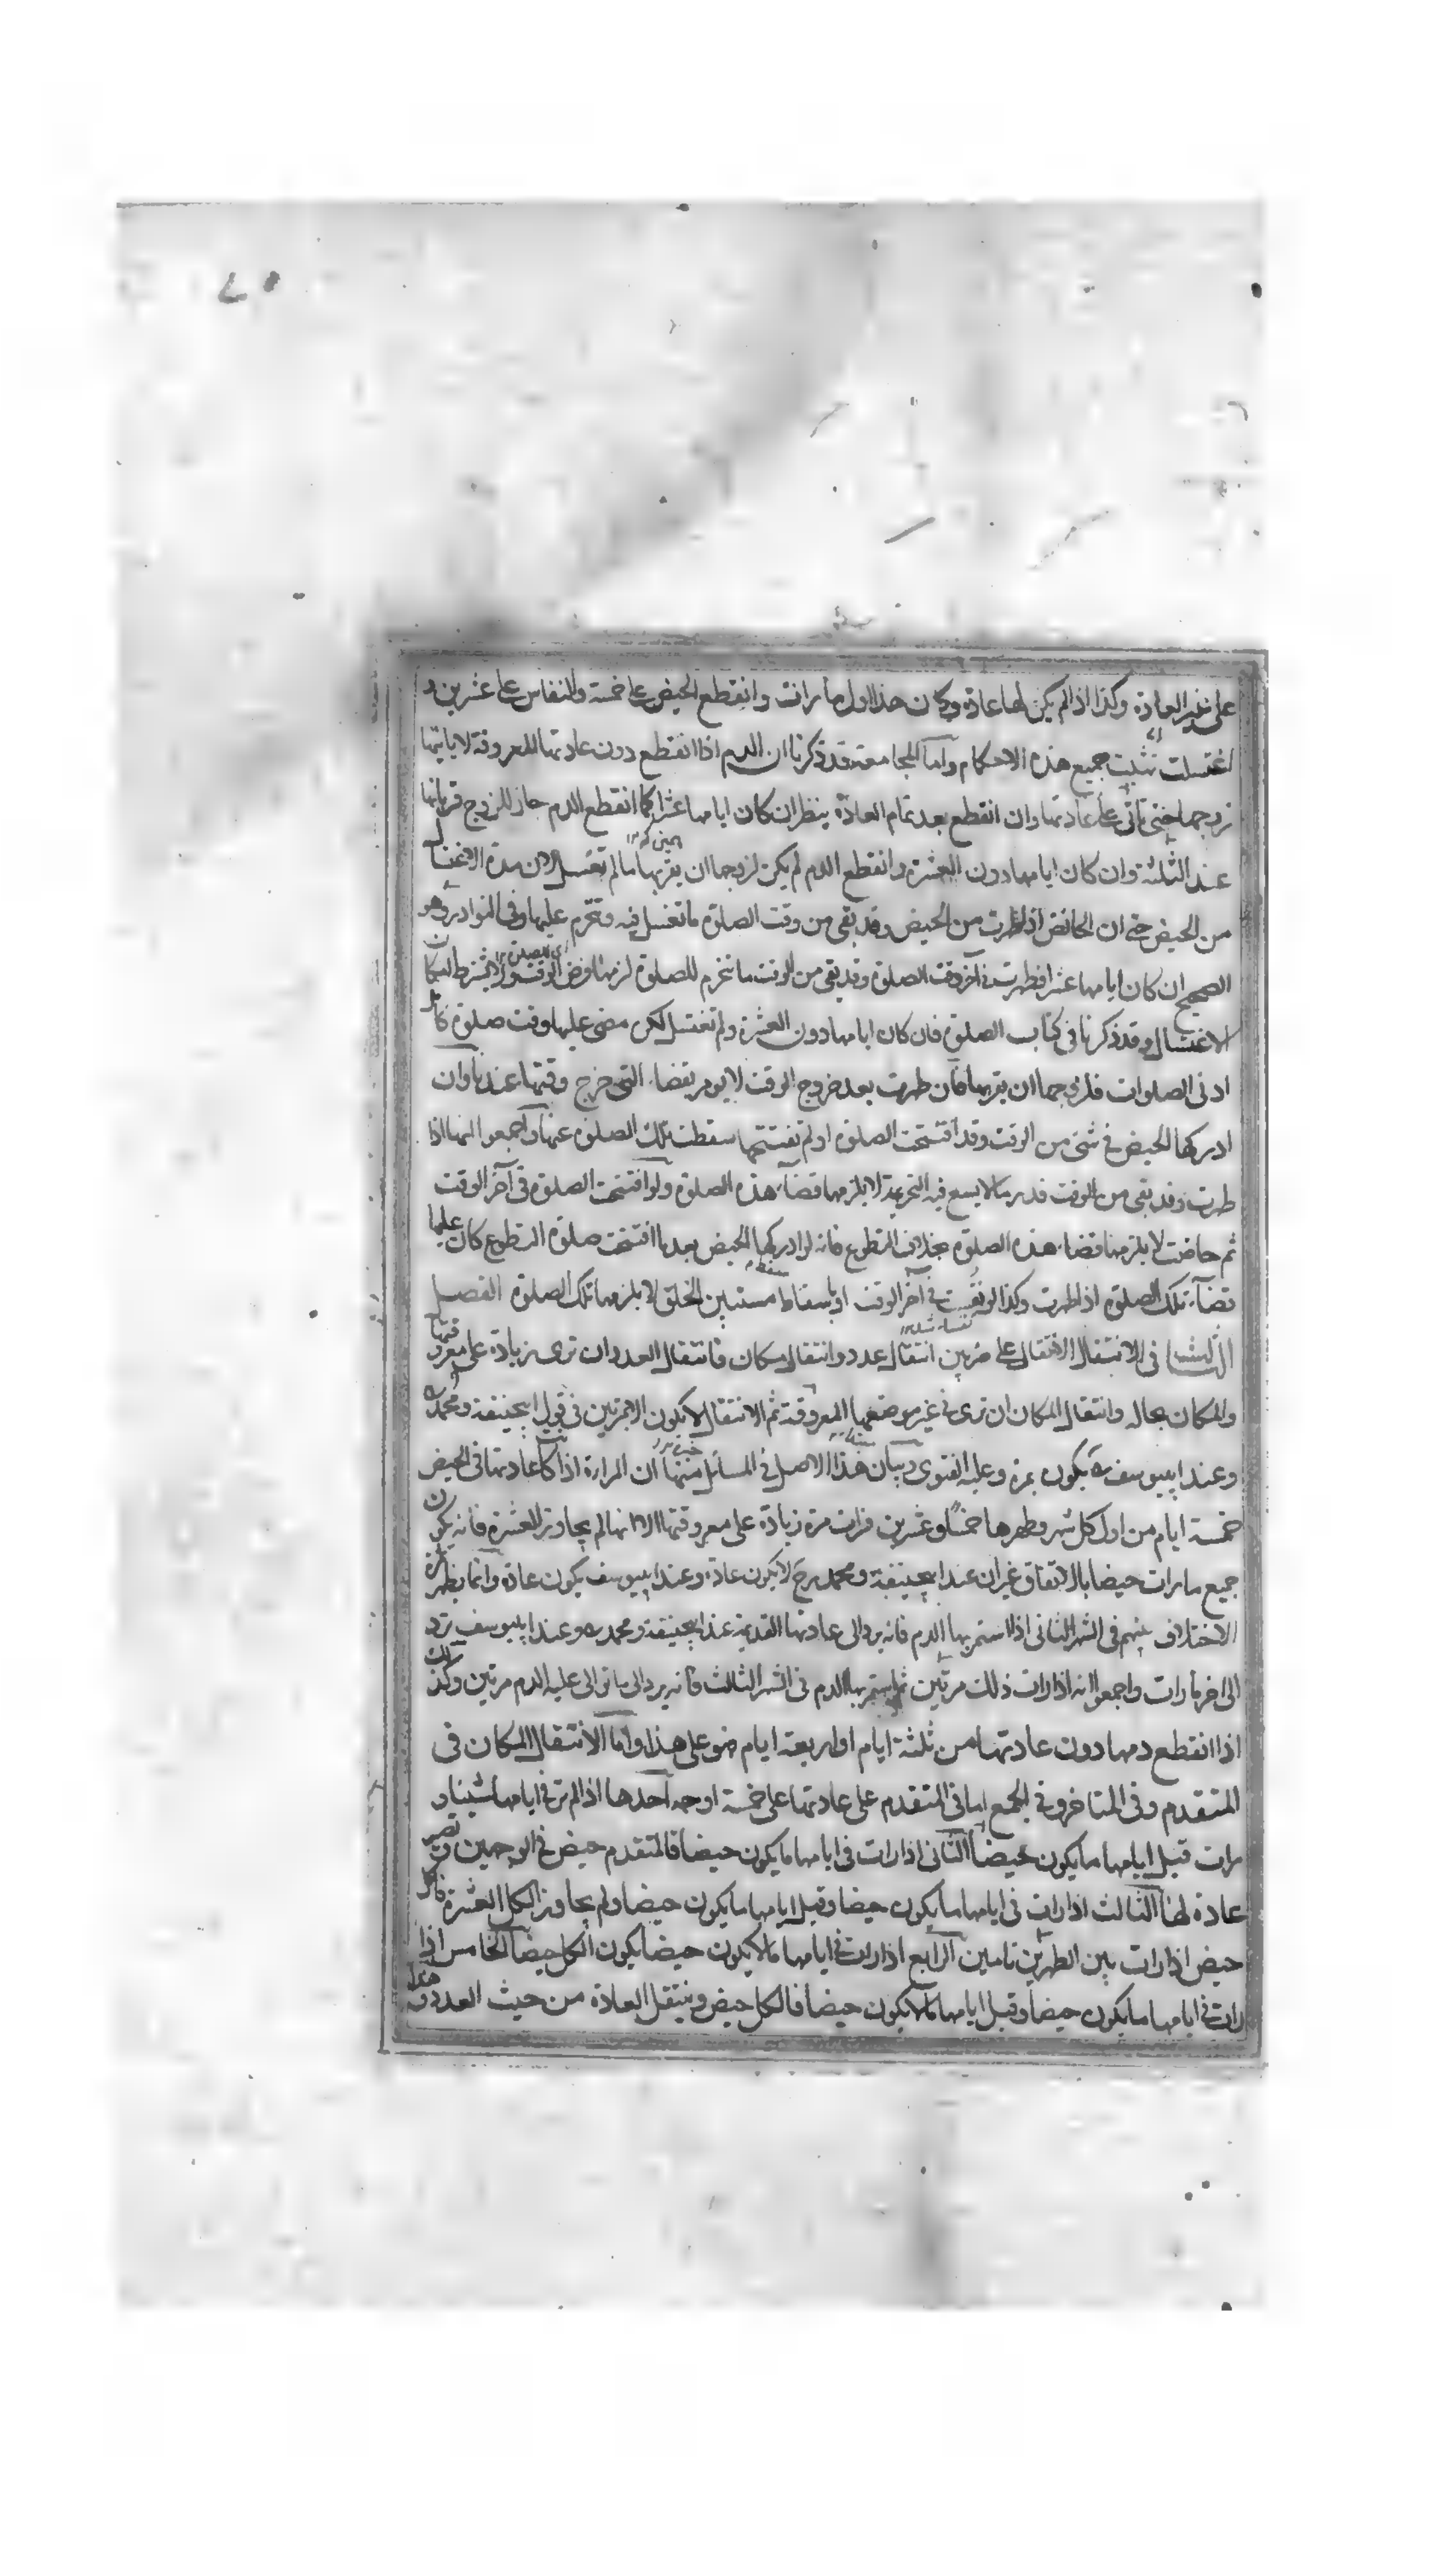 على غير العادة وكذا اذا لم يكن لها عادة وكان هذا اول ما رات وانقطع الحيض على خمسة والنفاس على عشرين و
اغتسلت تثبت جميع هذه الاحكام واما المجامعة فقد ذكرنا ان الدم اذا انقطع دون عادتها المعروفة لا ياتيها
زوجها حتى تاتى على عادتها وان انقطع بعد تمام العادة ينظر ان كان ايامها عشرا كما انقطع الدم جاز للزوج قربانها
عند الثلثة وان كان ايامها دون العشرة وانقطع الدم لم يكن لزوجها ان يقربها ما لم تغتسل لان مدة الاغتسال
من الحيض حتى ان الحائض اذا طهرت من الحيض وقد بقى من وقت الصلوة ما تغتسل فيه وتحرم عليها وفى النوادر وهو
الصحيح ان كان ايامها عشرا فطهرت فى آخر وقت الصلوة وقد بقى من الوقت ما تحرم للصلوة لزمها فرض الوقت ولا يشترط امكان
الاغتسال وقد ذكرنا فى كتاب الصلوة فان كان ايامها دون العشرة ولم تغتسل لكن مضى عليها وقت صلوة كامل
ادنى الصلوات فلزوجها ان يقربها فان طهرت بعد خروج الوقت لا يومر بقضاء التى خرج وقتها عندنا وان
ادركها الحيض فى شئ من الوقت وقد افتتحت الصلوة او لم تفتتحها سقطت تلك الصلوة عنها واجمعوا انها اذا
طهرت وقد بقى من الوقت قدر ما لا يسع فيه التحريمة لا يلزمها قضاء هذه الصلوة ولو افتتحت الصلوة فى آخر الوقت
ثم حاضت لا يلزمها قضاء هذه الصلوة بخلاف التطوع فانه لو ادركها الحيض بعد ما افتتحت صلوة التطوع كان عليها
قضاء تلك الصلوة اذا طهرت وكذا لو نفست فى آخر الوقت او باسقاط مستبين الخلق لا يلزمها تلك الصلوة الفصل
الثالث فى الانتقال الانتقال على ضربين انتقال عدد وانتقال مكان فانتقال العدد ان ترى زيادة على معروفتها
والمكان بحاله وانتقال المكان ان ترى فى غير موضعها المعروفة ثم الانتقال لا يكون الا بمرتين فى قول ابيحنيفة ومحمد
وعند ابييوسف يكون بمرة وعليه الفتوى وبيان هذا الاصل فى المسائل منها ان المراة اذا كان عادتها فى الحيض
خمسة ايام من اول كل شهر وطهرها خمسا وعشرين فرات مرة زيادة على معروفتها الا انها لم يجاوز العشرة فانه يكون
جميع ما رات حيضا بالاتفاق غير ان عند ابيحنيفة ومحمد رح لا يكون عادة وعند ابييوسف يكون عادة وانما يظهر ثمرة
الاختلاف بينهم فى الشهر الثانى اذا استمر بها الدم فانه يرد الى عادتها القديمة عند ابيحنيفة ومحمد وعند ابييوسف ترد
الى اخر ما رات واجمعوا انه اذا رات ذلك مرتين ثم استمر بها الدم فى الشهر الثالث فانه يرد الى ما توالى عليه الدم مرتين وكذلك
اذا انقطع دمها دون عادتها من ثلثة ايام او اربعة ايام فهو على هذا واما الانتقال المكان فى
المتقدم وفى المتاخر وفى الجمع اما فى المتقدم على عادتها على خمسة اوجه احدها اذا لم تر فى ايامها شيئا و
رات قبل ايامها ما يكون حيضا الثانى اذا رات فى ايامها ما يكون حيضا فالمتقدم حيض فى الوجهين وتصير
عادة لها الثالث اذا رات فى ايامها ما يكون حيضا وقبل ايامها ما يكون حيضا ولم يجاوز الكل العشرة فالكل
حيض اذا رات بين الطهرين تامين الرابع اذا رات فى ايامها ما لا يكون حيضا يكون الكل حيضا الخامس اذا
رات فى ايامها ما يكون حيضا وقبل ايامها ما لا يكون حيضا فالكل حيض وينتقل العادة من حيث العدد